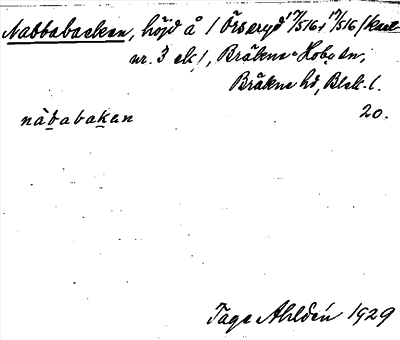 Nabbabacken, höjd å 1 Örseryd 17/516 + 17/516 (kart
nr. 3 ek), Bräkne-Hoby sn,
Bräkne hd, Blek. l.
nàbabakan 20.
Tage Ahldén 1929